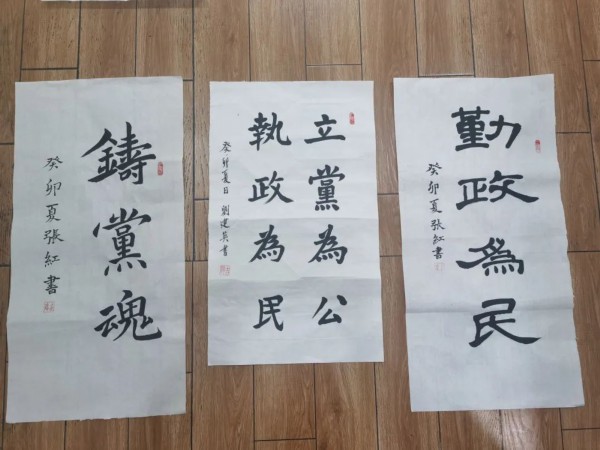 鑄黨魂
癸卯夏張紅書
立黨為公
執政為民
癸卯夏日劉建兵書
勤政為民
癸卯夏張紅書